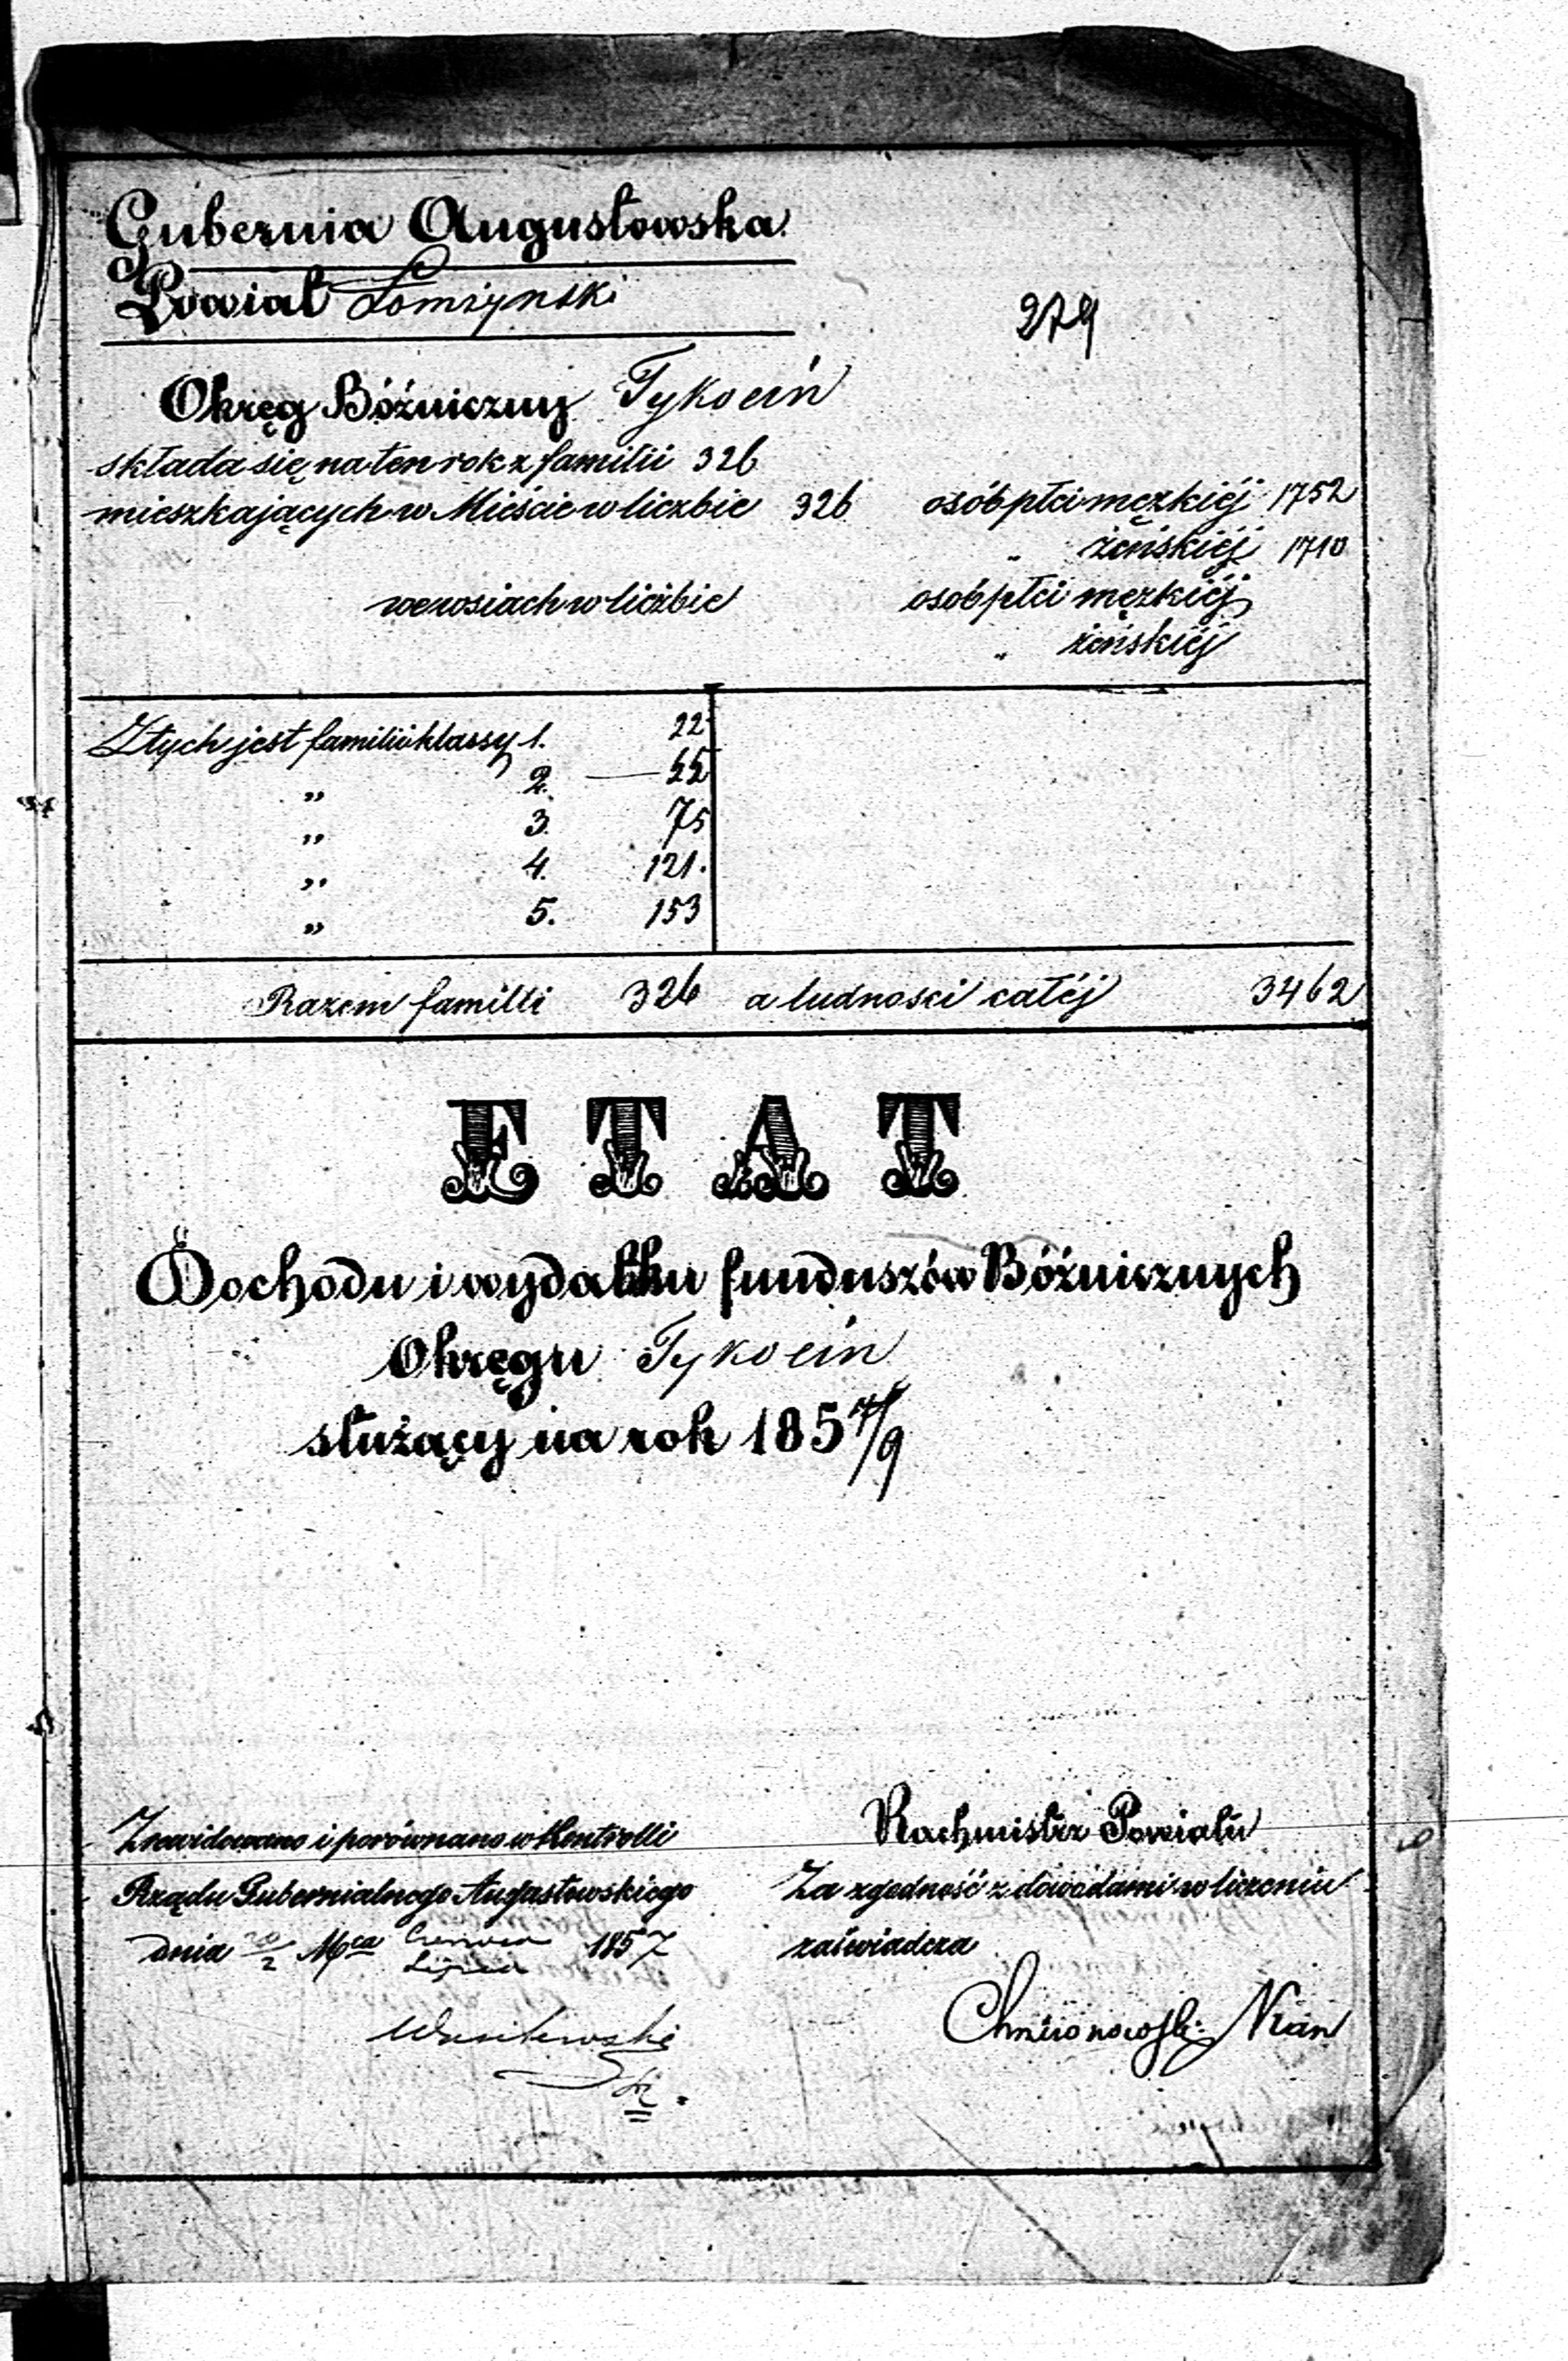 Gubernia Augustowska
Powiat Łomżynski
279
Okręg Bóżniczny Tykocin
składa się na ten rok z familii 326
mieszkających w Mieście w liczbie 326 osób płci męzkiéj 1752
„ żeńskiéj 1710
we wsiach w liczbie osób płci męzkiéj
„ żeńskiéj
Z tych jest familiów klassy 1. 22
„ 2. — 55
„ 3. 75
„ 4. 121.
„ 5. 153
Razem familii 326 a ludnosci całéj 3462
ETAT
Dochodu i wydatku funduszów Bóżnicznych
Okręgu Tykocin
służący na rok 1857/9
Zrewidowano i porównano w Kontrolli
Rządu Gubernialnego Augustowskiego
dnia /2 Mca Czerwca Lipca 1857
Wasilewski
Rachmistrz Powiatu
Za zgodność z dowodami w liczeniu
zaświadcza